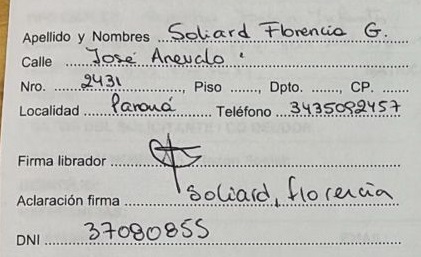 Apellido y Nombres Soliard Florencia G.
Calle José Arevalo
Nro. 2431 Piso ......, Dpto. ......, CP. ......
Localidad Paraná Teléfono 3435092457
Firma librador
Aclaración firma Soliard, florencia
DNI 37080855